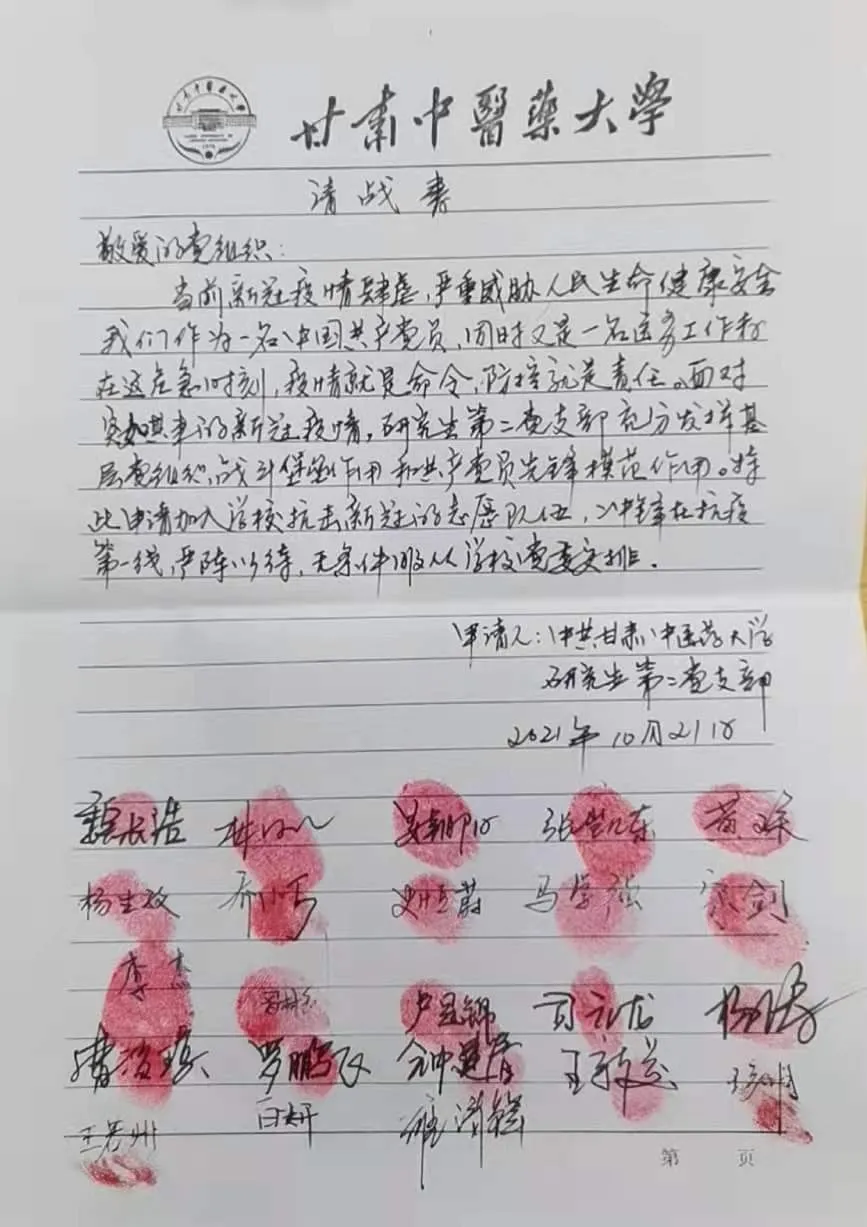 甘肃中醫藥大学
请战书
敬爱的党组织:
当前新冠疫情肆虐,严重威胁人民生命健康安全
我们作为一名中国共产党员,同时又是一名医务工作者
在这危急时刻,疫情就是命令,防控就是责任。面对
突如其来的新冠疫情,研究生第二党支部充分发挥基
层党组织战斗堡垒作用和共产党员先锋模范作用。特
此申请加入学校抗击新冠的志愿队伍,冲锋在抗疫
第一线,严阵以待,无条件服从学校党委安排.
申请人:中共甘肃中医药大学
研究生第二党支部
2021年10月21日
杨生效 马学强 宗剑
李杰 卢昱锦
罗鹏飞
王若州 白妍
第 页